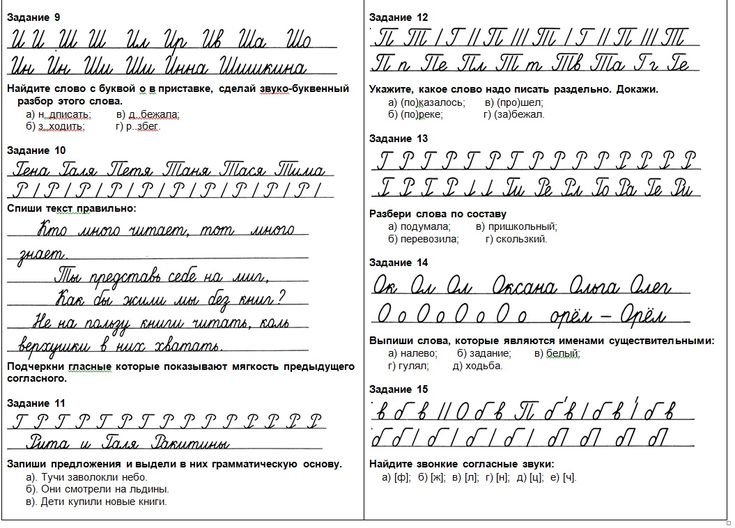 Задание 9
И И Ш Ш Ил Ир Ив Ша Шо
Ин Ин Ши Ши Инна Шишкина
Найдите слово с буквой о в приставке, сделай звуко-буквенный
разбор этого слова.
а) н_дписать; в) д..бежала;
б) з..ходить; г) р..збег.
Задание 10
Гена Галя Петя Таня Тася Тима
Р / Р / Р / Р / Р / Р / Р / Р / Р / Р /
Спиши текст правильно:
Кто много читает, тот много
знает.
Ты представь себе на миг,
Как бы жили мы без книг?
Не на пользу книги читать, коль
верхушки в них хватать.
Подчеркни гласные которые показывают мягкость предыдущего
согласного.
Задание 11
Г Р Г Р Р Г Р Г Р Р Р Р Р Р Р
Рита и Галя Ракитины
Запиши предложения и выдели в них грамматическую основу.
а). Тучи заволокли небо.
б). Они смотрели на льдины.
в). Дети купили новые книги.
Задание 12
П Т / Г / / П / / / Т / Г / / П / / / Т
П п Пе Пл Т т Тв Та Г г Ге
Укажите, какое слово надо писать раздельно. Докажи.
а) (по)казалось; в) (про)шел;
б) (по)реке; г) (за)бежал.
Задание 13
Г Р Г Р Г Р Г Р Г Р Р Р Р Р Р
Г Р Г Р Ги Ре Рл Го Ра Ге Ри
Разбери слова по составу
а) подумала; в) пришкольный;
б) перевозила; г) скользкий.
Задание 14
Ок Ол Ол Оксана Ольга Олег
О о О о О о О о орёл – Орёл
Выпиши слова, которые являются именами существительными:
а) налево; б) задание; в) белый;
г) гулял; д) ходьба.
Задание 15
в б в / / О б в П б в / б в / б в
б б / б / б / б / б / П П П
Найдите звонкие согласные звуки:
а) [ф]; б) [ж]; в) [л]; г) [н]; д) [ц]; е) [ч].